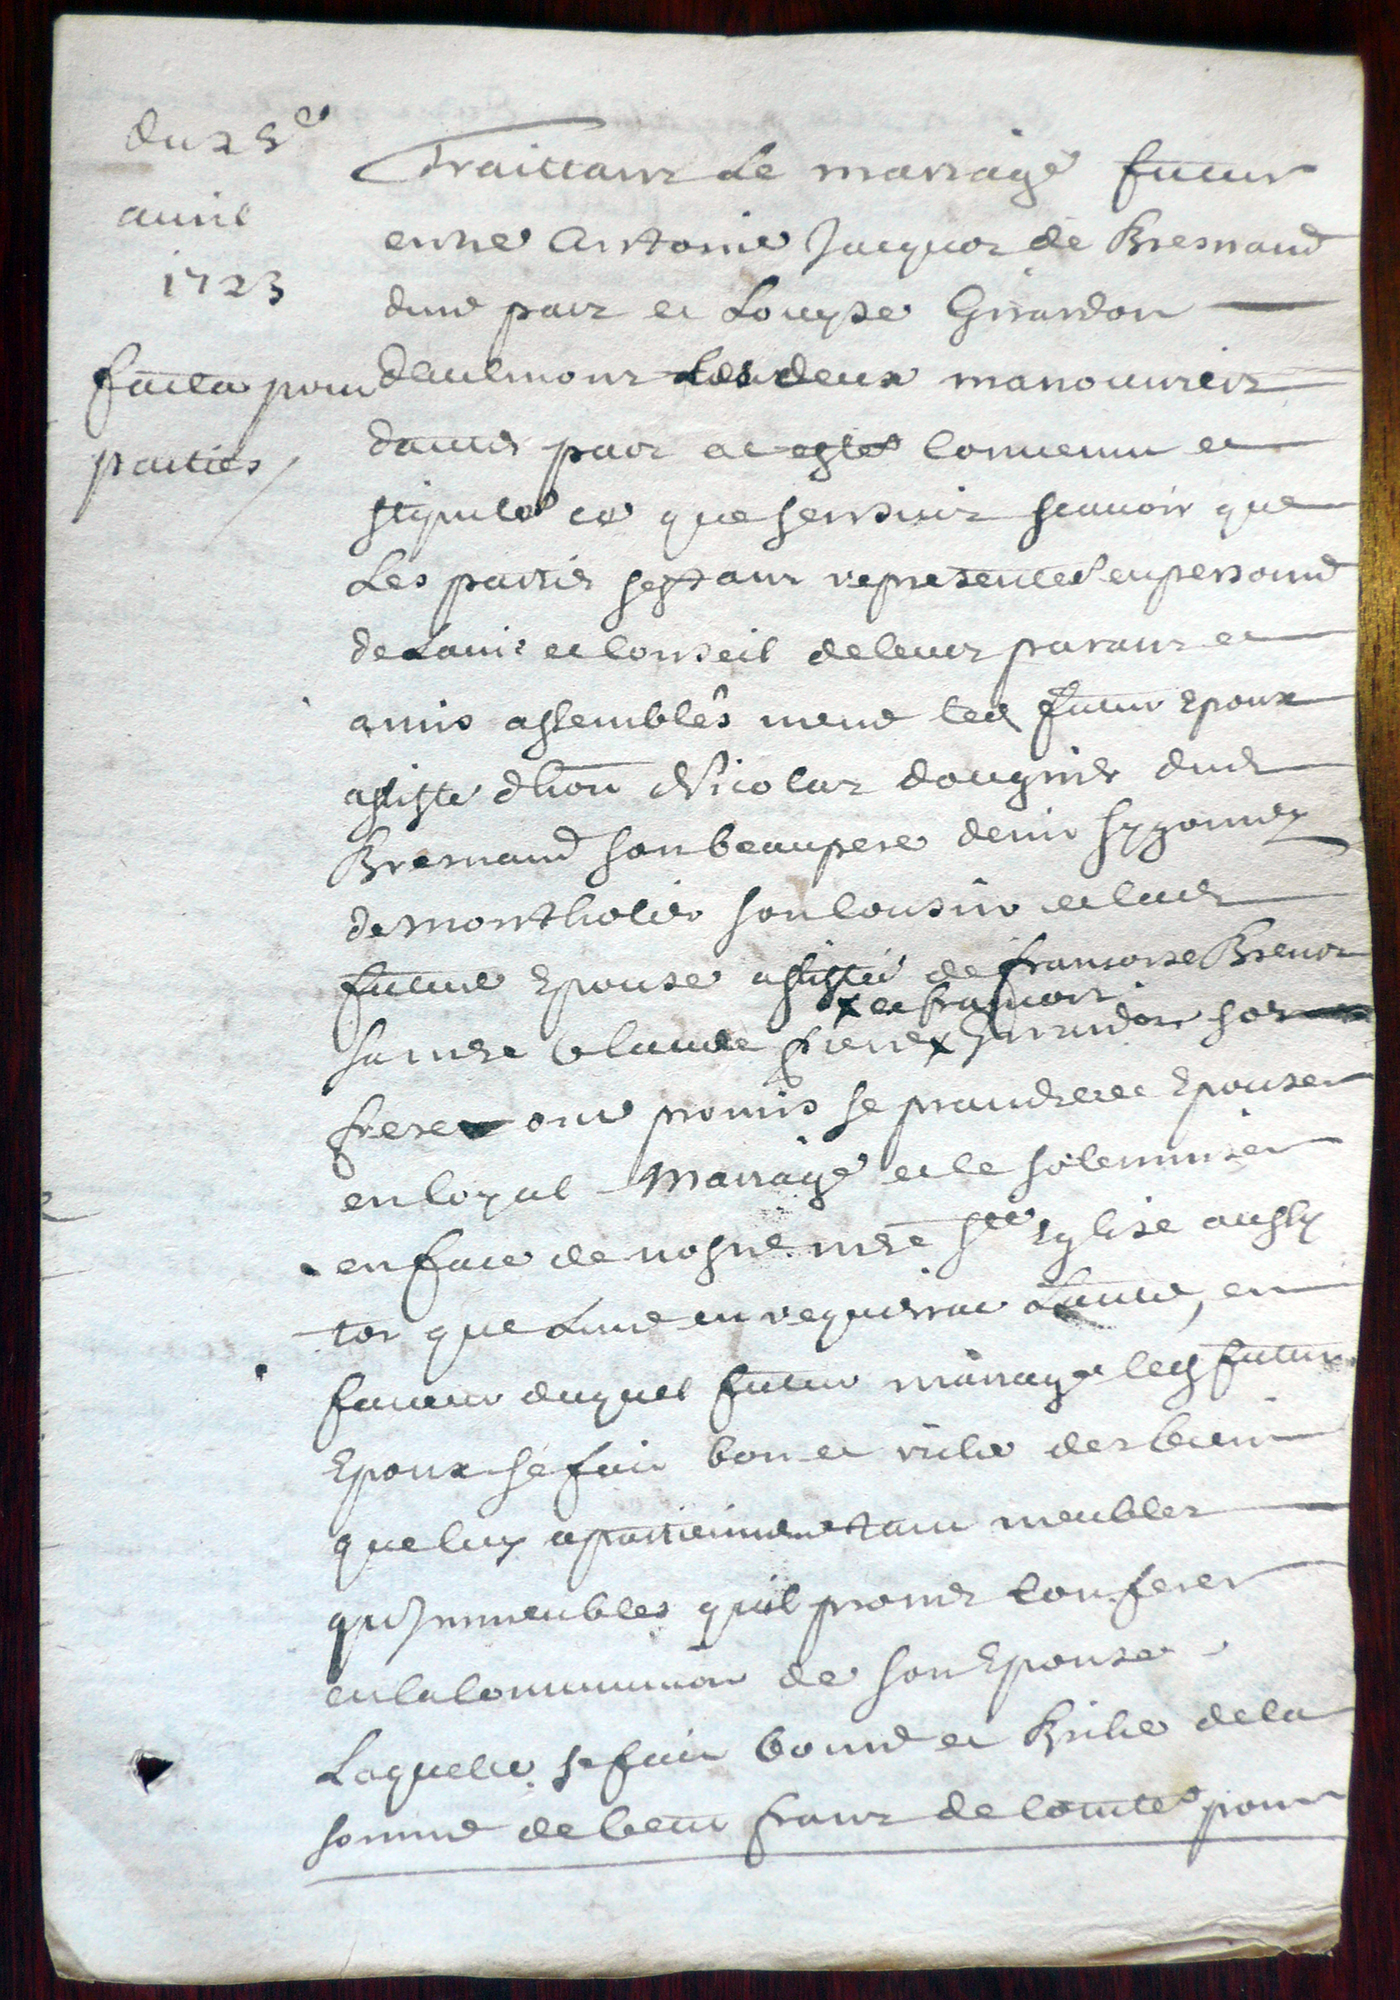 du 25e
avril
1723
faicta pour
parties
Traittant Le mariage futur
entre Antoine Jacquot de Bresnand
dune part et Louyse Girardon
daulmont Les deux manouvriers
dautre part at esté convenu et
stipulé ce que sensuit scavoir que
Les parties sestant representées en personne
de Lavis et Conseil de leurs parans et
amis assemblés meme led futur Epoux
assisté dhon Nicolas dougnier dud
Bresnand son beaupere denis
de Montholier son Cousin et lad
future Epouse assistée de francoise Brenot
x et francois
sa mere Claude pierre x Girardon ses
freres ont promis se prandre et Epouser
en loyal Mariage et le solemniser
en face de nostre mere Ste Eglise aussy
tot que Lune en requerrat Lautre, en
faveur duquel futur mariage led futur
Epoux se fait bon et riche des biens
que luy apartiennent tant meubles
qu'Immeubles quil promet Conferer
en la Communion de son Epouse
Laquelle se fait bonne et Riche de la
somme de Cent francs de Comté pour